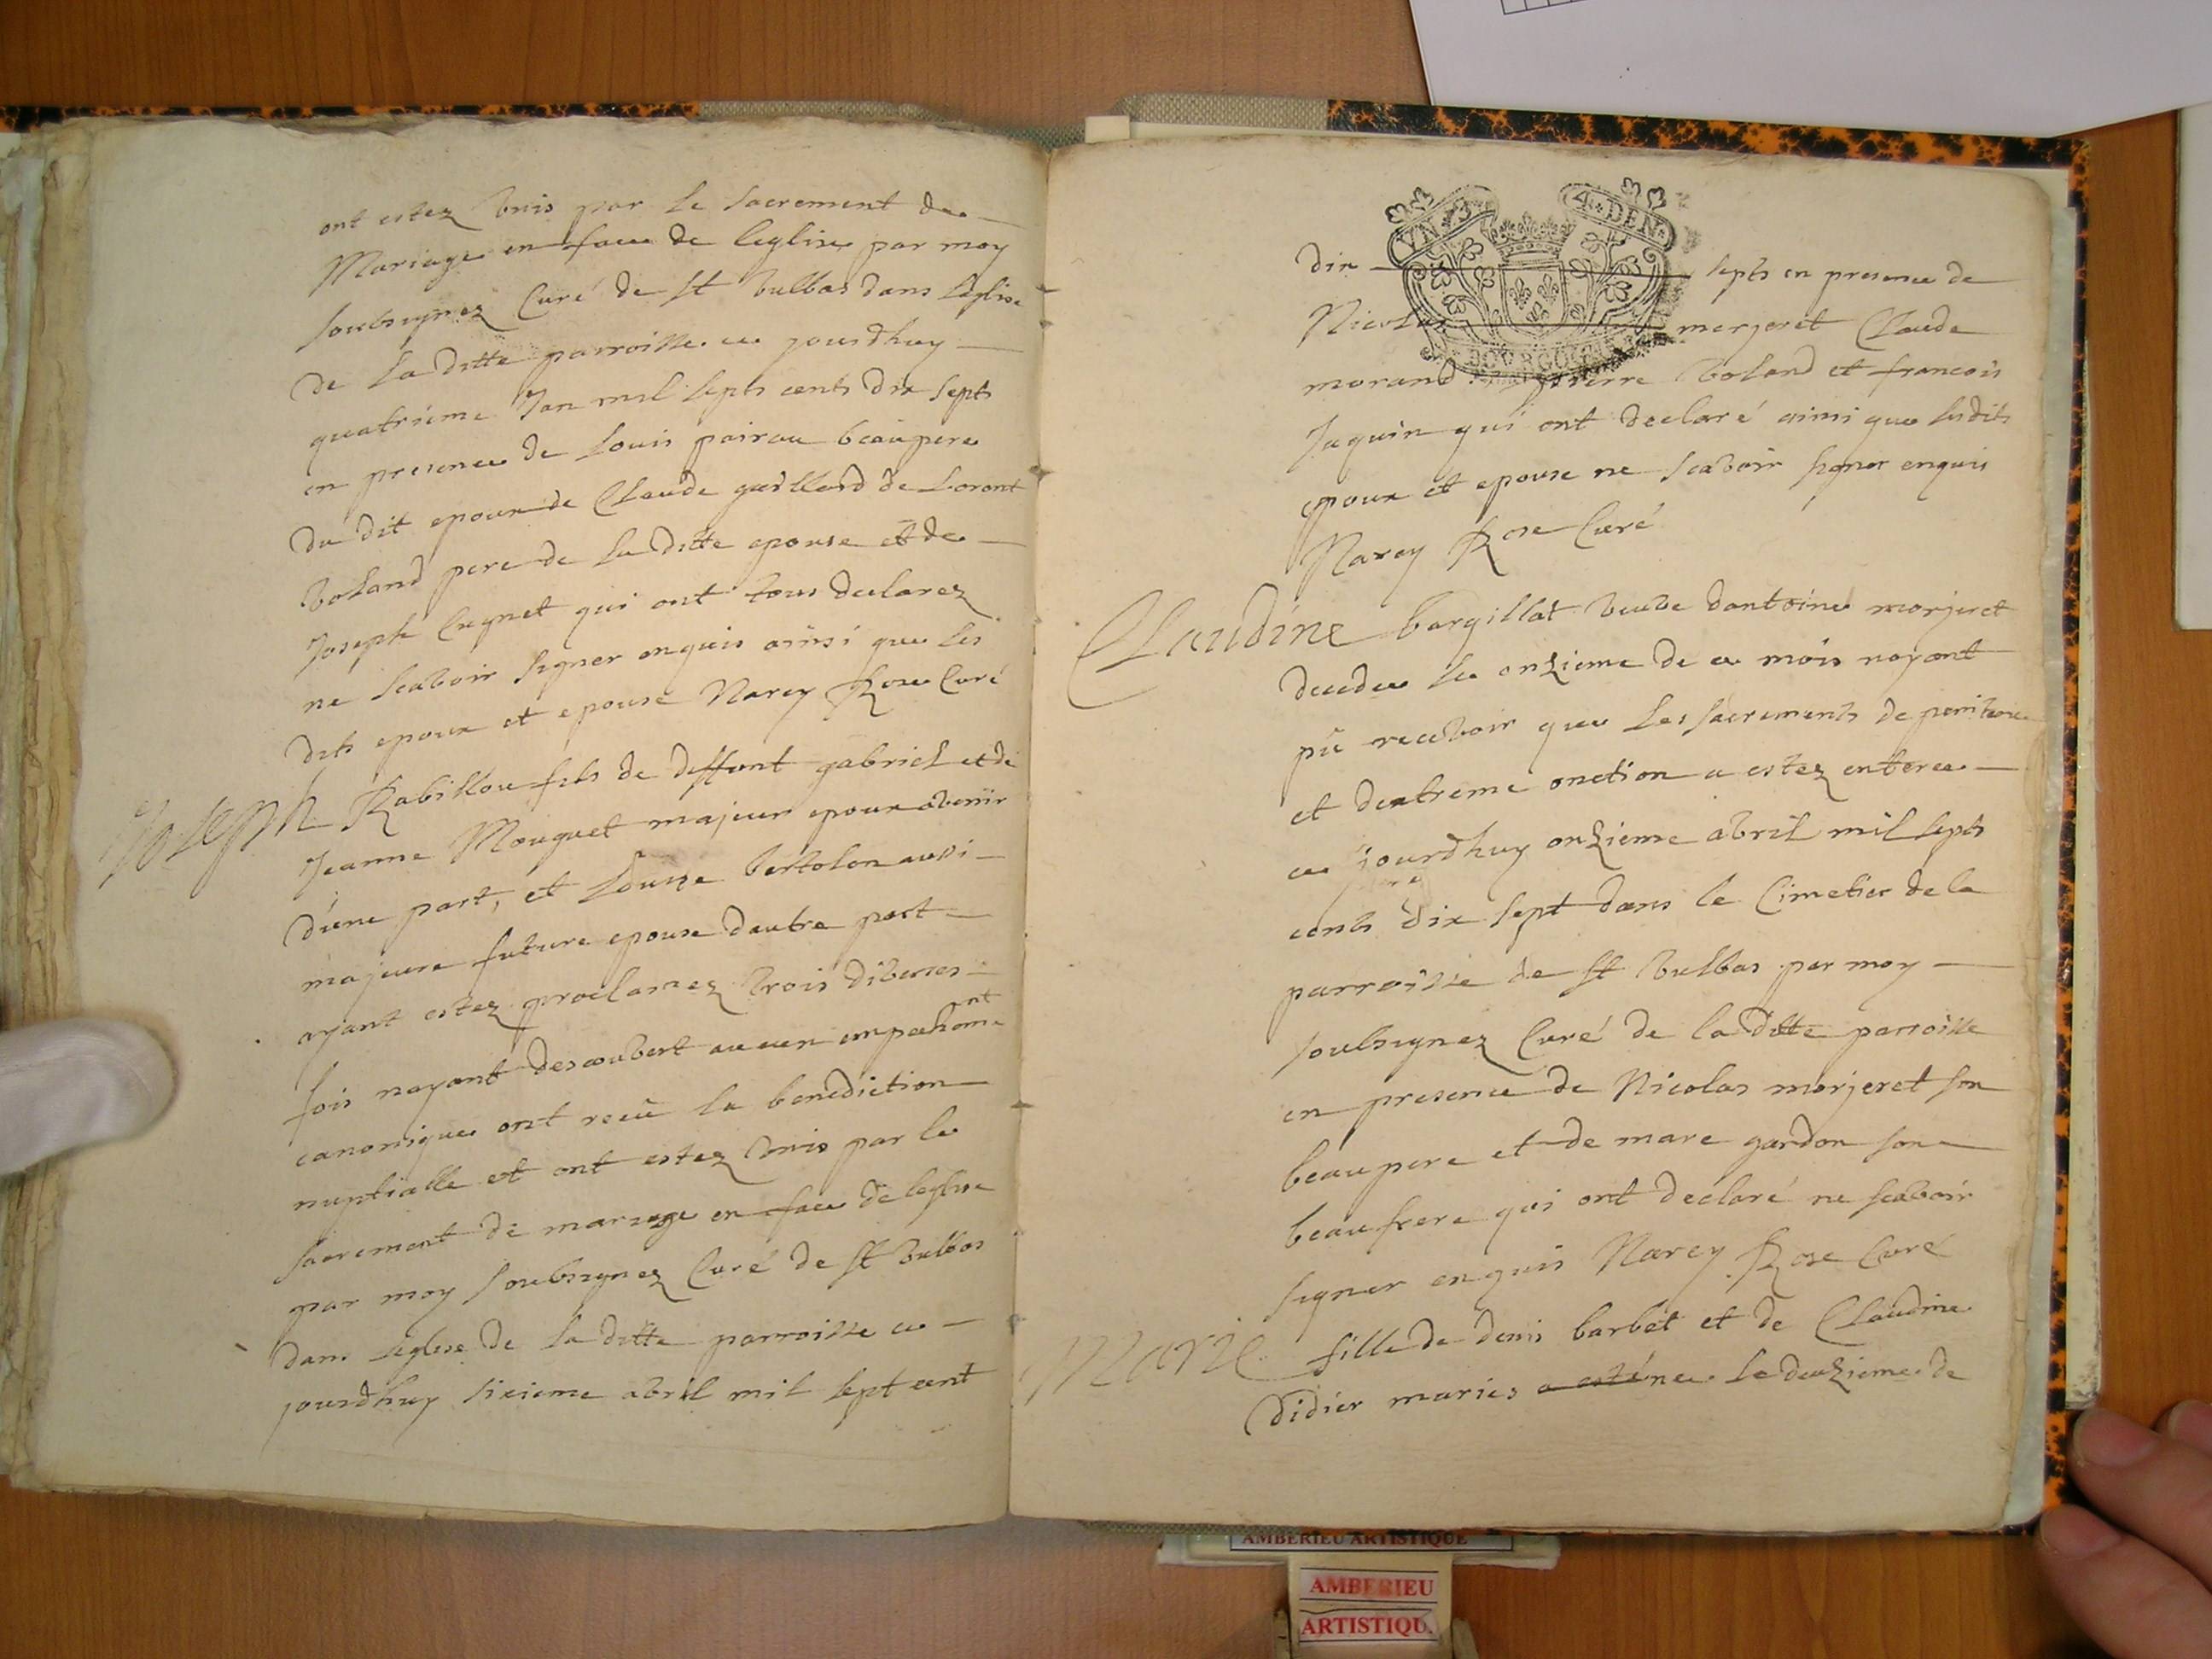 ont estez unis par le sacrement de
Mariage en face de leglise par moy
soubsignez Curé de St Vulbas dans leglise
de la ditte parroisse ce jourdhuy
quatrieme Jan mil septs cents dix septs
en presence de Louis pairau beaupere
du dit epoux de Claude gaillard de Loront
Voland pere de la ditte epouse et de
Joseph Cugnet qui ont tous declarez
ne scavoir signer enquis ainsi que les
dits epoux et epouse Narcy Rose Curé
Joseph Rabillou fils de deffunt gabriel et de
Jeanne Mouguet majeur epoux avenir
d'une part, et Louise bertolon aussi
majeure future epouse dautre part
ayant estez proclamez trois diverses
fois nayant descouvert aucun empechement
canonique ont receu la benediction
nuptialle et ont estez unis par le
sacrement de mariage en face de leglise
par moy soubsignez Curé de St Vulbas
dans leglise de la ditte parroisse ce
jourdhuy sixieme avril mil sept cent
VN S 4 DEN
dix septs en presence de
Nicolas merjeret Claude
BOURGO
morand pierre Voland et francois
Jaquin qui ont declaré ainsi que lesdits
epoux et epouse ne scavoir signer enquis
Narcy Rose Curé
Claudine bargillat veuve dantoine morjeret
decedee le onzieme de ce mois nayant
pû recevoir que les sacrements de penitence
et dextreme onction a estez enteree
ce jourdhuy onzieme abril mil septs
cents dix sept dans le Cimetier de la
parroisse de St Vulbas par moy
soubsignez Curé de la ditte parroisse
en presence de Nicolas morjeret son
beaupere et de marc gardon son
beaufrere qui ont declaré ne scavoir
signer enquis Narcy Rose Curé
Marie fille de denis barbet et de Claudine
Didier maries a esté nee le deuzieme de
AMBERIEU ARTISTIQUE
AMBERIEU
ARTISTIQU